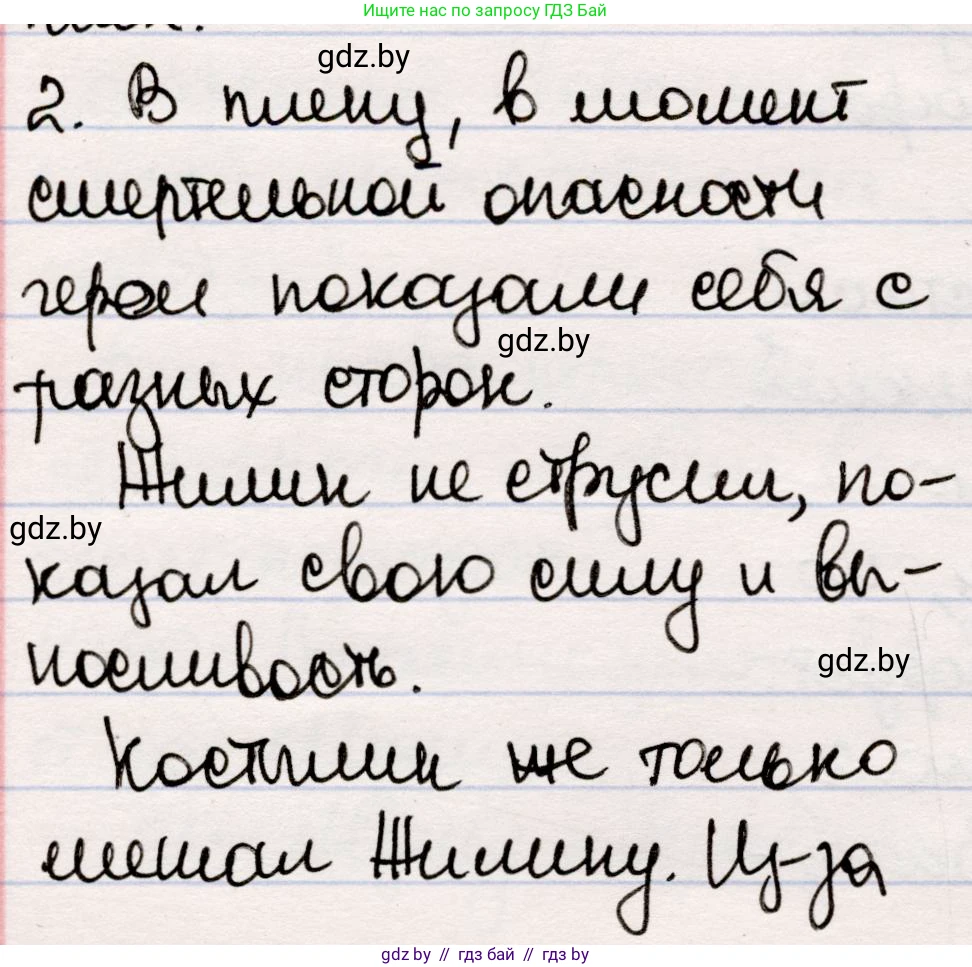 Ищите нас по запросу ГДЗ Бай
gdz.by
2. В плену, в момент
смертельной опасности
герои показали себя с
gdz.by
разных сторон.
Жилин не струсил, по-
gdz.by
казал свою силу и вы-
носливость.
gdz.by
Костылин же только
мешал Жилину. Из-за
gdz.by // gdz бай // gdz by